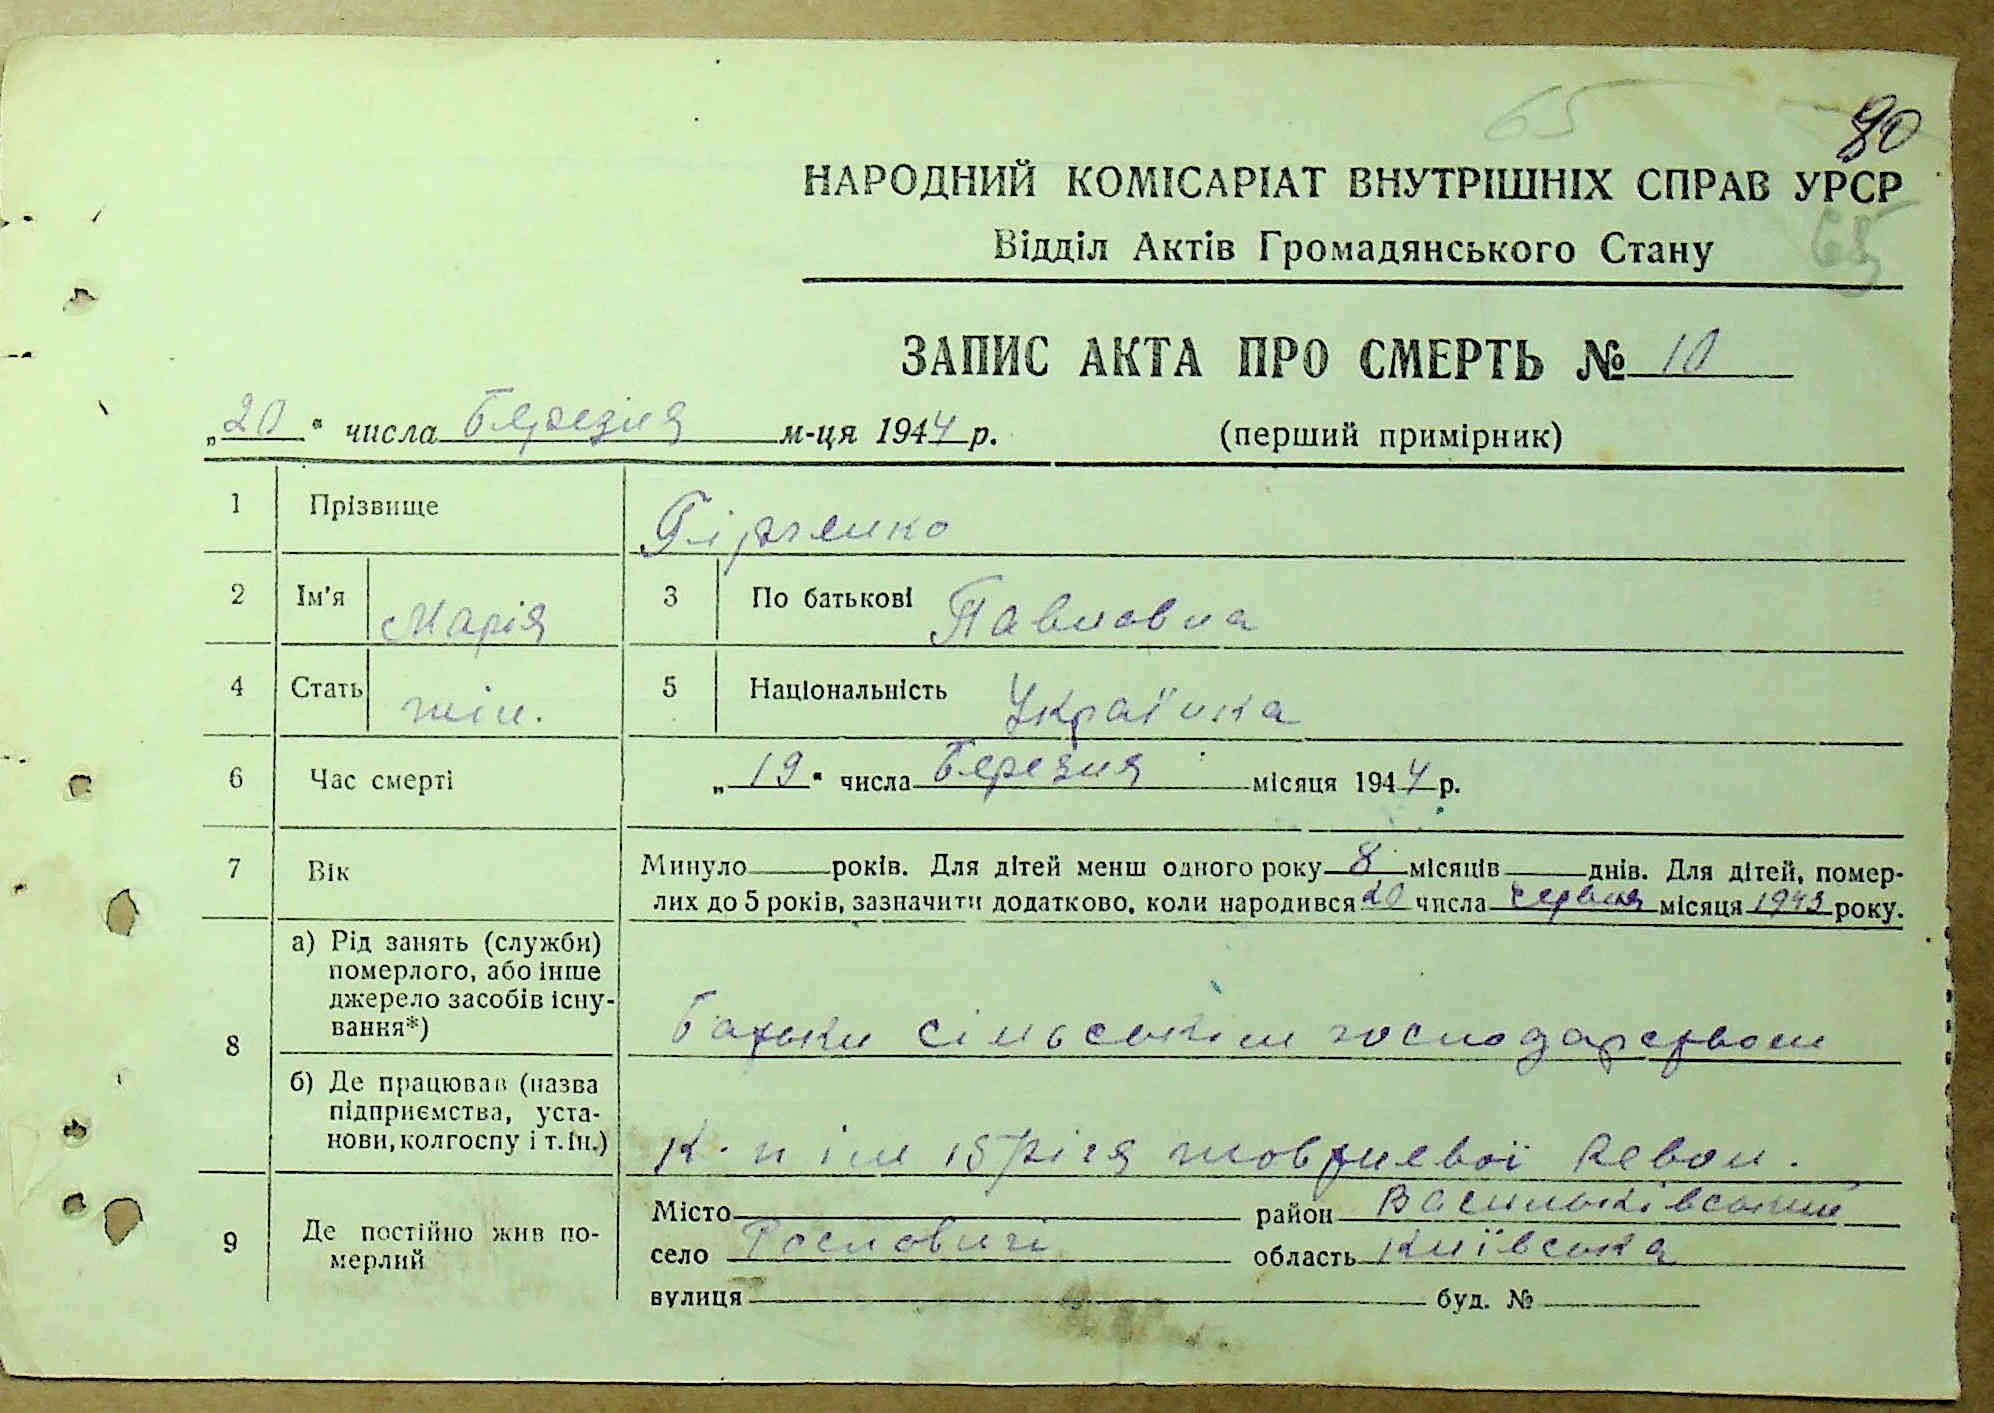 65
80
НАРОДНИЙ КОМІСАРІАТ ВНУТРІШНІХ СПРАВ УРСР
Відділ Актів Громадянського Стану
68
ЗАПИС АКТА ПРО СМЕРТЬ № 10
„20“ числа Березня м-ця 1944 р. (перший примірник)
1 Прізвище Гірченко
2 Ім’я Марія 3 По батькові Павловна
4 Стать жін. 5 Національність Українка
6 Час смерті „19“ числа Березня місяця 1944 р.
7 Вік Минуло рокїв. Для дітей менш одного року 8 місяців днів. Для дітей, помер-
лих до 5 років, зазначити додатково, коли народився 20 числа червня місяця 1943 року.
8 а) Рід занять (служби) померлого, або інше джерело засобів існу-вання*) Батьки сільським господарством
б) Де працював (назва підприємства, уста-нови, колгоспу і т. ін.) К. п ім 15 Річя жовтневої Револ.
9 Де постійно жив по-мерлий Місто район Васильківський
село Рословичі область Київська
вулиця буд. №